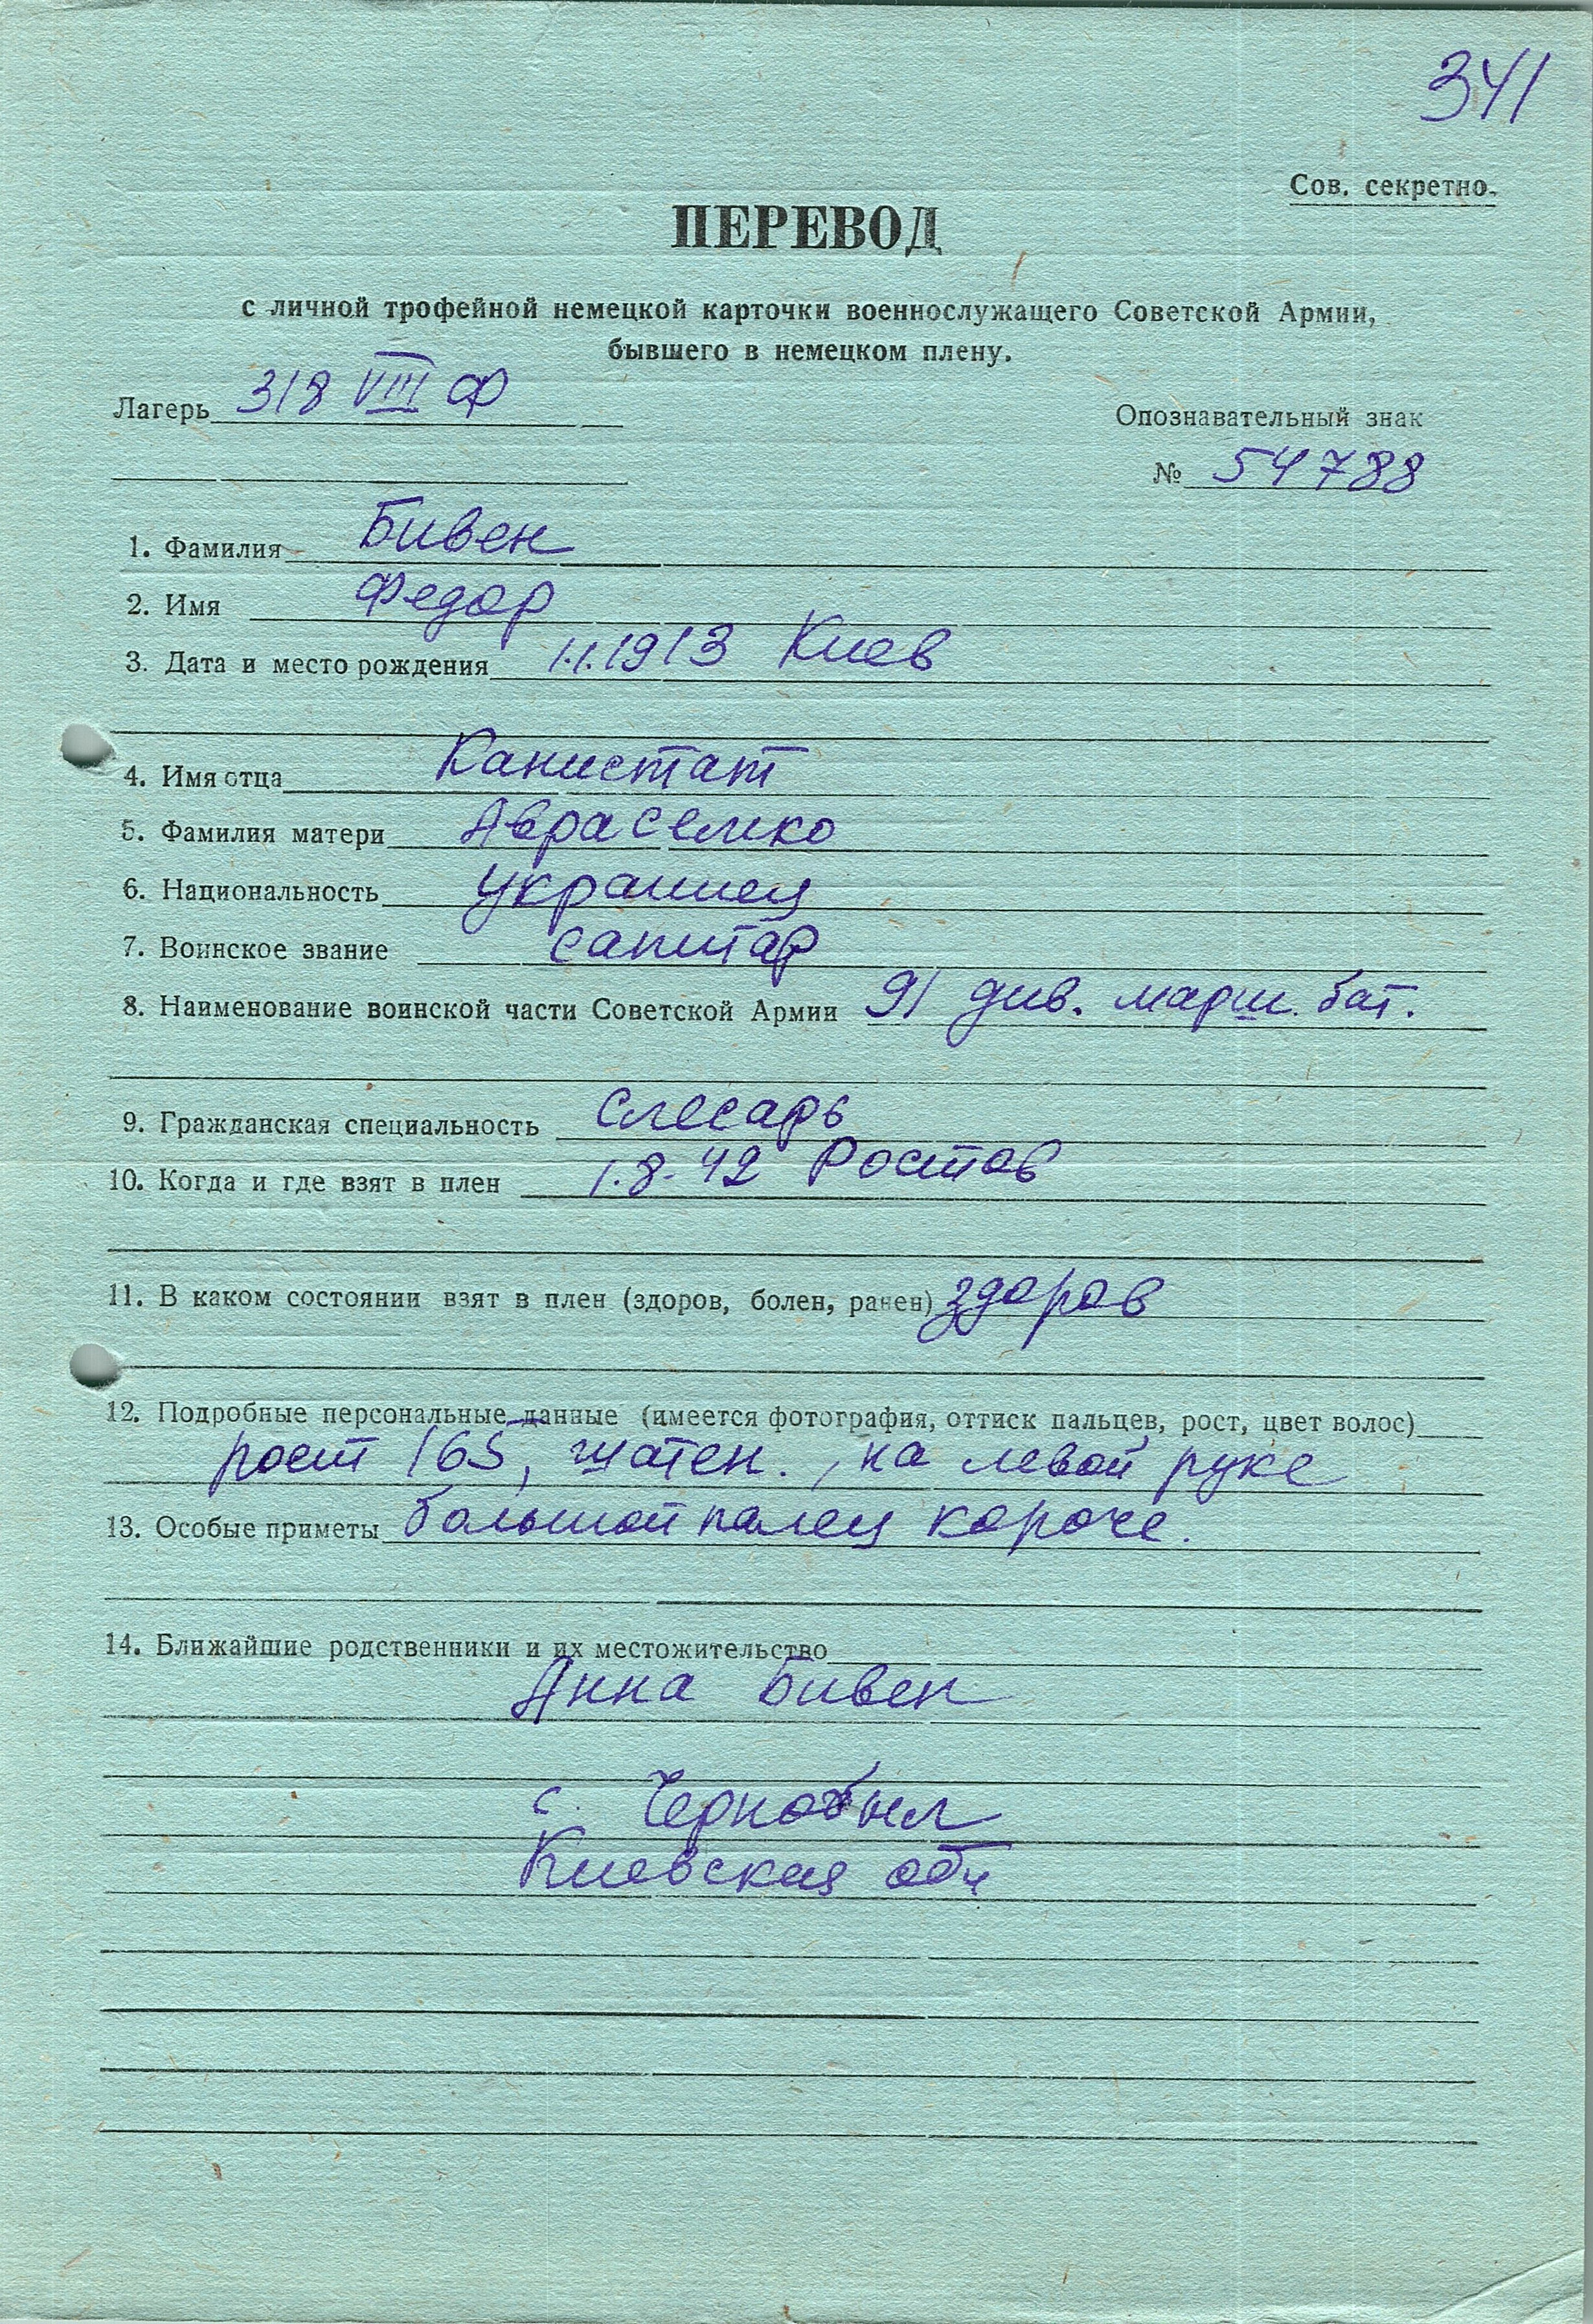 341
Сов. секретно.
ПЕРЕВОД
с личной трофейной немецкой карточки военнослужащего Советской Армии,
бывшего в немецком плену.
Лагерь 318 VIII Ф
Опознавательный знак
№ 54788
1. Фамилия Бивен
2. Имя Федор
3. Дата и место рождения 1.1.1913 Киев
4. Имя отца Канистат
5. Фамилия матери Аврасемко
6. Национальность украинец
7. Воинское звание санитар
8. Наименование воинской части Советской Армии 91 див. марш. бат.
9. Гражданская специальность слесарь
10. Когда и где взят в плен 1.8.42 Ростов
11. В каком состоянии взят в плен (здоров, болен, ранен) здоров
12. Подробные персональные данные (имеется фотография, оттиск пальцев, рост, цвет волос)
рост 165, шатен., на левой руке
13. Особые приметы большой палец короче.
14. Ближайшие родственники и их местожительство
Анна Бивен
с. Чернобил
Киевская обл